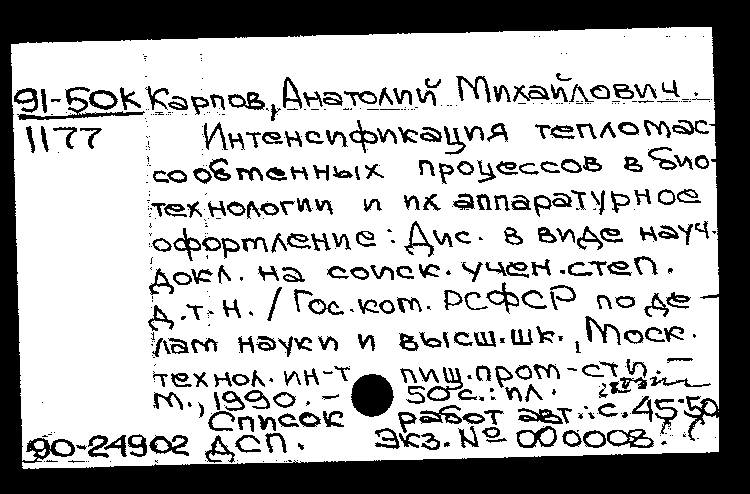 91-50К Карпов, Анатолий Михайлович.
1177 Интенсификация тепломас-
сообменных процессов в био-
технологии и их аппаратурное
оформление: Дис. в виде науч.
докл. на соиск. учен. степ.
д.т.н. / Гос. ком. РСФСР по де-
лам науки и высш. шк., Моск.
технол. ин-т пищ. пром-сти. –
М., 1990. – 50 с.: ил.
Список работ авт.: с. 45-50
90-24902 ДСП. Экз. № 000008.